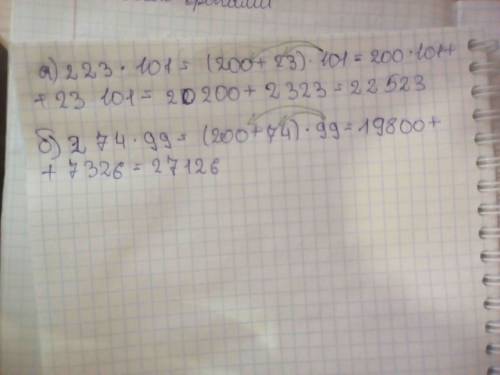 а) 223 · 101 = (200 + 23) · 101 = 200 · 101 +
+ 23 101 = 20200 + 2323 = 22523
б) 274 · 99 = (200 + 74) · 99 = 19800 +
+ 7326 = 27126